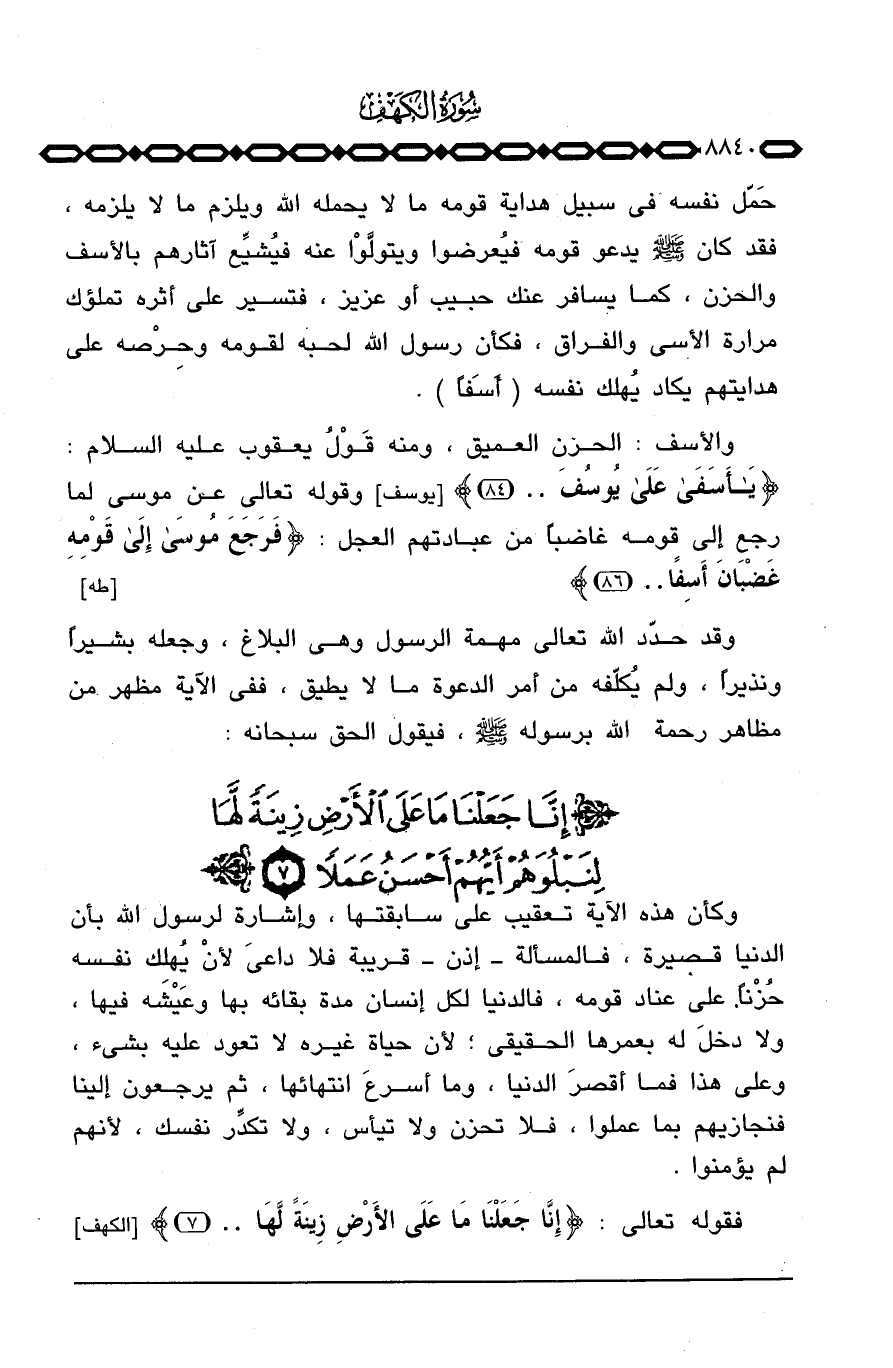 سُورَةُ الكَهْفِ
٨٨٤٠
حَمّل نفسه فى سبيل هداية قومه ما لا يحمله الله ويلزم ما لا يلزمه ،
فقد كان ﷺ يدعو قومه فيُعرضوا ويتولَّوْا عنه فيُشيِّع آثارهم بالأسف
والحزن ، كما يسافر عنك حبيب أو عزيز ، فتسير على أثره تملؤك
مرارة الأسى والفراق ، فكأن رسول الله لحبه لقومه وحِرْصه على
هدايتهم يكاد يُهلك نفسه ( أَسَفاً ) .
والأسف : الحزن العميق ، ومنه قَوْلُ يعقوب عليه السلام :
﴿ يَـٰأَسَفَىٰ عَلَىٰ يُوسُفَ .. (٨٤) ﴾ [يوسف] وقوله تعالى عن موسى لما
رجع إلى قومه غاضباً من عبادتهم العجل : ﴿ فَرَجَعَ مُوسَىٰ إِلَىٰ قَوْمِهِ
غَضْبَانَ أَسِفًا .. (٨٦) ﴾ [طه]
وقد حدّد الله تعالى مهمة الرسول وهى البلاغ ، وجعله بشيراً
ونذيراً ، ولم يُكلّفه من أمر الدعوة ما لا يطيق ، ففى الآية مظهر من
مظاهر رحمة الله برسوله ﷺ ، فيقول الحق سبحانه :
﴿ إِنَّا جَعَلْنَا مَا عَلَى ٱلْأَرْضِ زِينَةً لَّهَا
لِنَبْلُوَهُمْ أَيُّهُمْ أَحْسَنُ عَمَلًا (٧) ﴾
وكأن هذه الآية تعقيب على سابقتها ، وإشارة لرسول الله بأن
الدنيا قصيرة ، فالمسألة - إذن - قريبة فلا داعىَ لأنْ يُهلك نفسه
حُزْناً على عناد قومه ، فالدنيا لكل إنسان مدة بقائه بها وعَيْشه فيها ،
ولا دخلَ له بعمرها الحقيقى ؛ لأن حياة غيره لا تعود عليه بشىء ،
وعلى هذا فما أقصرَ الدنيا ، وما أسرعَ انتهائها ، ثم يرجعون إلينا
فنجازيهم بما عملوا ، فلا تحزن ولا تيأس ، ولا تكدِّر نفسك ، لأنهم
لم يؤمنوا .
فقوله تعالى : ﴿ إِنَّا جَعَلْنَا مَا عَلَى الأَرْضِ زِينَةً لَّهَا .. (٧) ﴾ [الكهف]